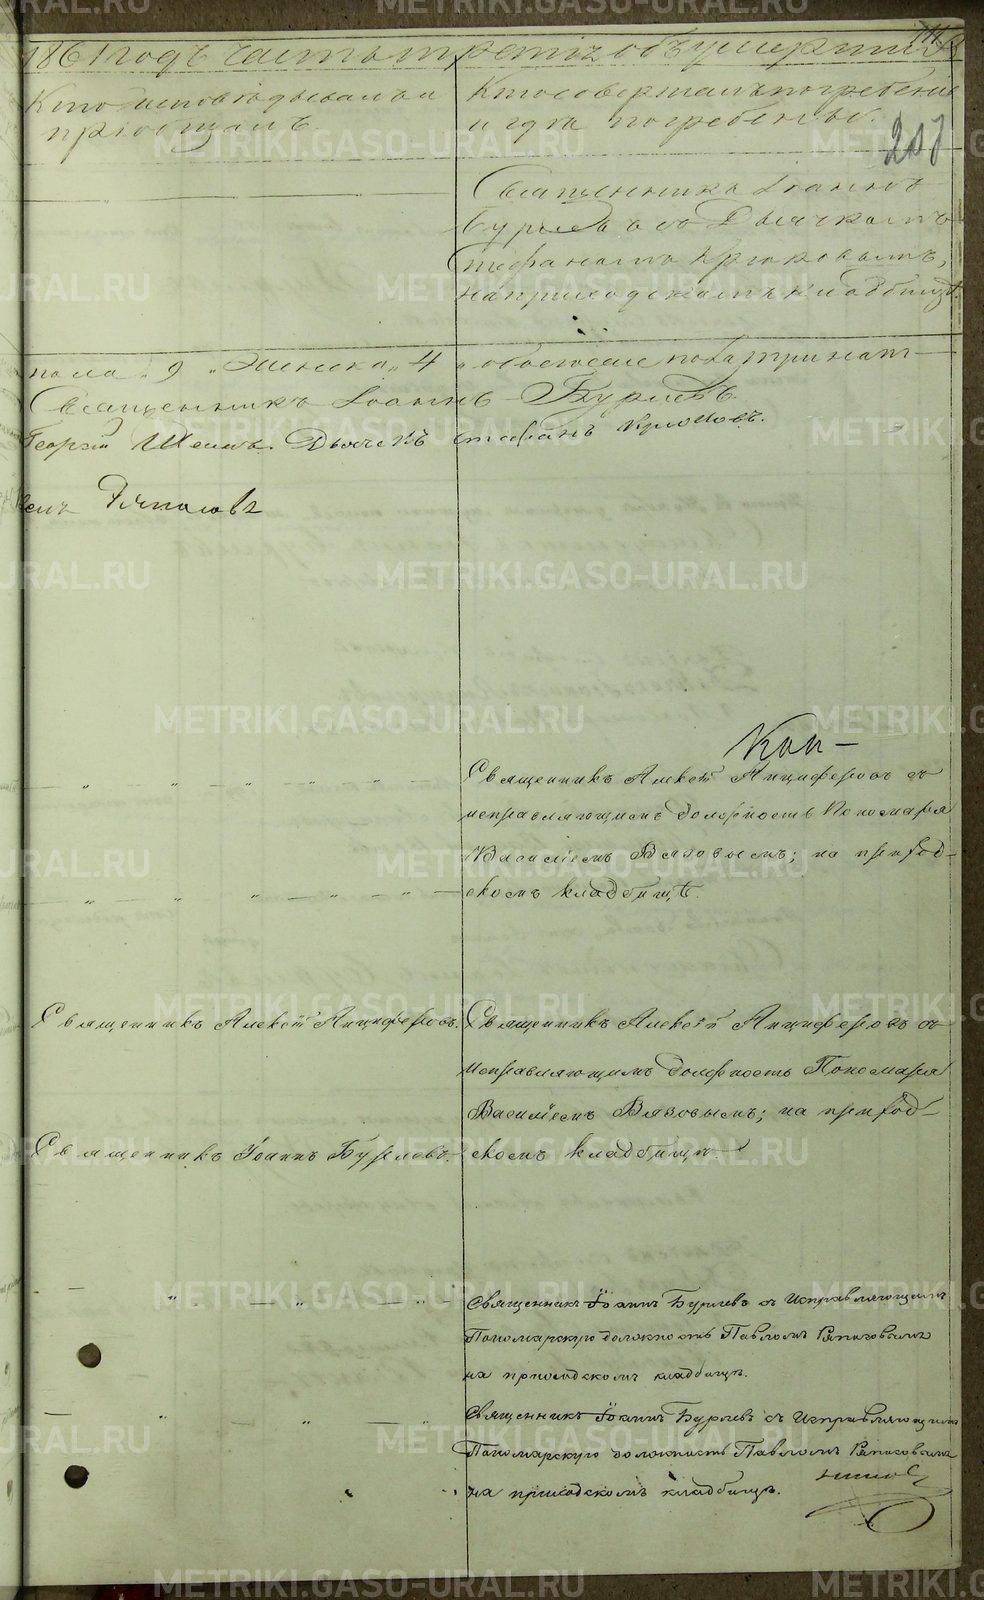 1861 годъ часть третія объ умершихъ
207
Кто исповѣдывалъ и
пріобщалъ.
Кто совершалъ погребеніе
и гдѣ погребены.
Священникъ Іоаннъ
Бурлевъ съ Дьячкомъ
Стефаномъ Крюковымъ,
на приходскомъ кладбищѣ.
пола 9 Женска 4 обоего же пола тринать
Священникъ Іоаннъ Бурлевъ
Георгій Дьячекъ Стефанъ Крюковъ.
Кон-
Священникъ Алексѣй Анциферовъ съ
исправляющимъ должность Пономаря
Василіемъ Вязовымъ; на приход-
скомъ кладбищѣ.
Священникъ Алексѣй Анциферовъ.
Священникъ Алексѣй Анциферовъ съ
исправляющимъ должность Пономаря
Василіемъ Вязовымъ; на приход-
Священникъ Іоаннъ Бурлевъ.
скомъ кладбищѣ.
Священникъ Іоаннъ Бурлевъ съ Исправляющимъ
Пономарскую должность Павломъ
на приходскомъ кладбищѣ.
Священникъ Іоаннъ Бурлевъ съ Исправляющимъ
Пономарскую должность Павломъ
на приходскомъ кладбищѣ.
METRIKI.GASO-URAL.RU